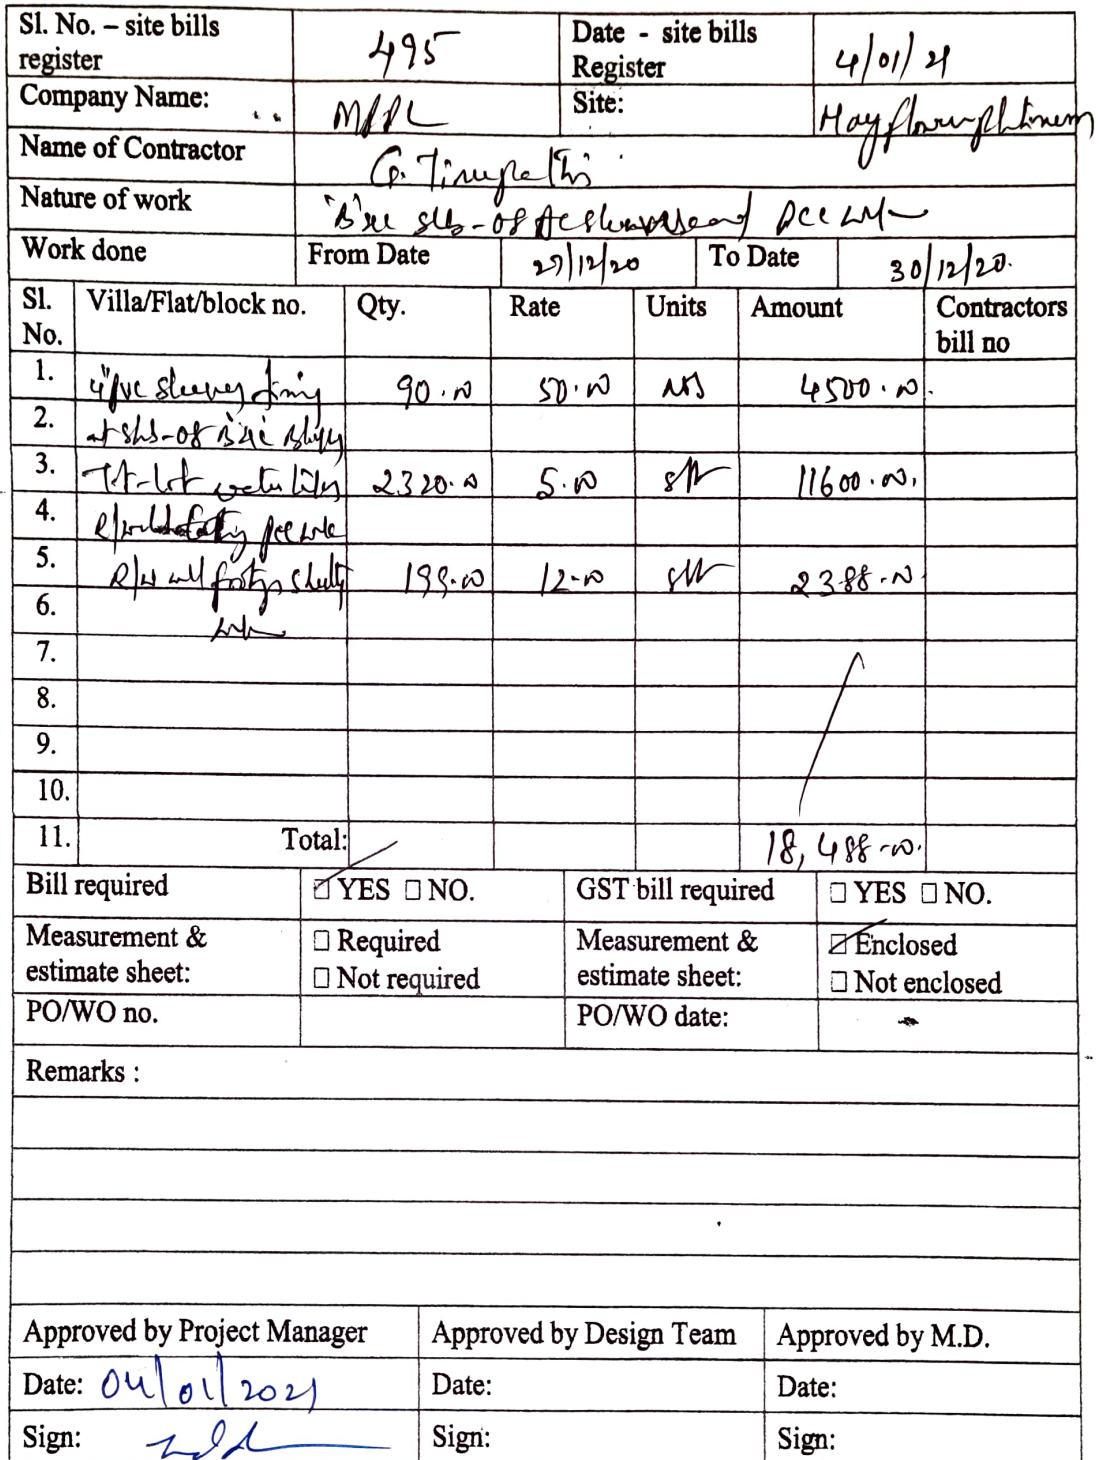 Sl. No. – site bills register 495 Date - site bills Register 4/01/21
Company Name: MPPL Site:
Name of Contractor G. Tirupathi
Nature of work
Work done From Date 27/12/20 To Date 30/12/20.
Sl. No. Villa/Flat/block no. Qty. Rate Units Amount Contractors bill no
1. 4" PVC sleeves fixing 90.00 50.00 NOS 4500.00
2.
3. 2320.00 5.00 sft 11600.00
4. PCC work
5. R/W wall footings 199.00 12.00 sft 2388.00
6. work
7.
8.
9.
10.
11. Total: 18,488.00
Bill required ☑ YES ☐ NO. GST bill required ☐ YES ☐ NO.
Measurement & estimate sheet: ☐ Required ☐ Not required Measurement & estimate sheet: ☑ Enclosed ☐ Not enclosed
PO/WO no. PO/WO date:
Remarks :
Approved by Project Manager Approved by Design Team Approved by M.D.
Date: 04/01/2021 Date: Date:
Sign: Sign: Sign: